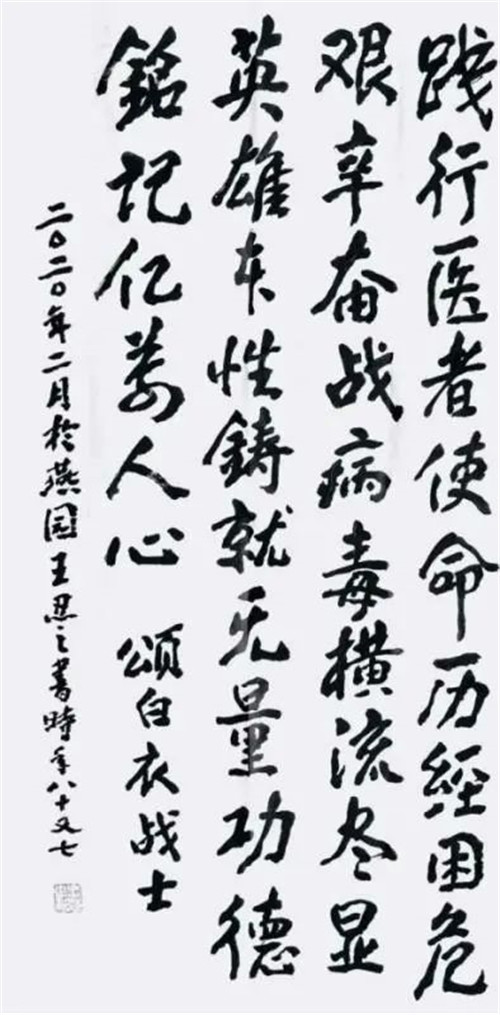 践行医者使命历经困危
艰辛奋战病毒横流尽显
英雄本性鑄就无量功德
銘记亿萬人心 颂白衣战士
二〇二〇年二月於燕园王思之書時年八十又七